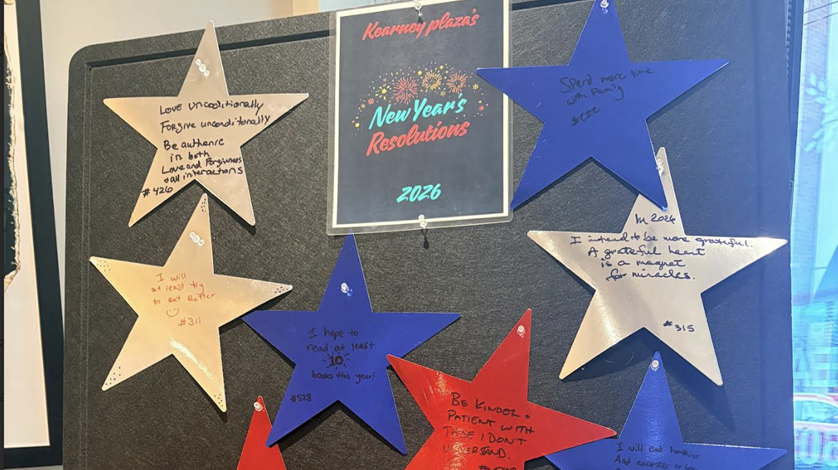 Kearney plaza's
New Year's
Resolutions
2026
Love unconditionally
Forgive unconditionally
Be authenic
in both
Love and Forgiveness
+ all interactions
#426
Spend more time
with Family
In 2026
I intend to be more grateful.
A grateful heart
is a magnet
for miracles.
#315
I will
at least try
to eat Better
#311
I hope to
read at least
10
books this year!
#528
Be Kinder +
Patient with
those I don't
understand.
I will eat
And exercise